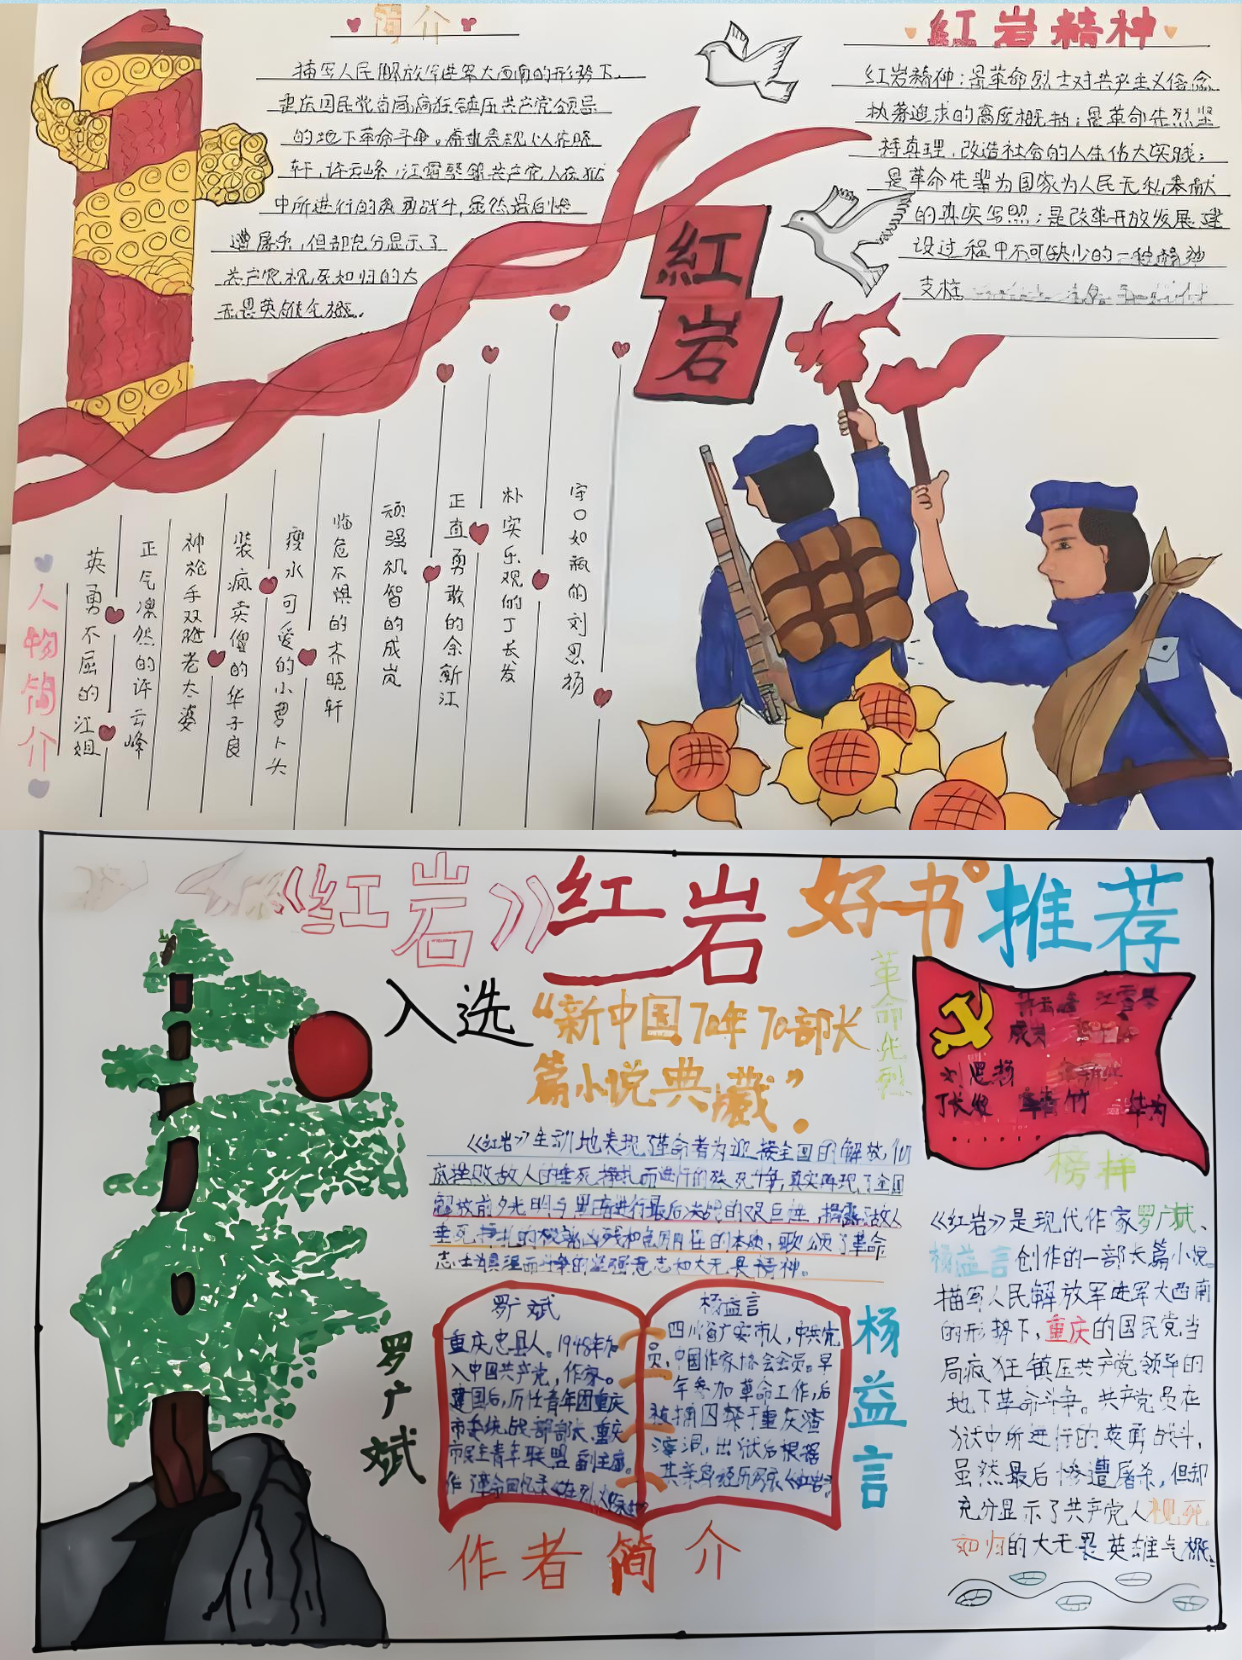 简介
描写人民解放军进军大西南的形势下,
重庆国民党当局疯狂镇压共产党领导
的地下革命斗争。着重表现以齐晓
轩,许云峰,江雪琴等共产党人在狱
中所进行的英勇战斗,虽然最后惨
遭屠杀,但却充分显示了
共产党视死如归的大
无畏英雄气概.
红岩精神
红岩精神:是革命烈士对共产主义信念
执著追求的高度概括;是革命先烈坚
持真理,改造社会的人生伟大实践;
是革命先辈为国家为人民无私奉献
的真实写照;是改革开放发展建
设过程中不可缺少的一种精神
支柱
紅
岩
人物简介
英勇不屈的江姐
正气凛然的许云峰
神枪手双枪老太婆
装疯卖傻的华子良
瘦小可爱的小萝卜头
临危不惧的齐晓轩
顽强机智的成岗
正直勇敢的余新江
朴实乐观的丁长发
守口如瓶的刘思扬
《红岩》红岩 好书 推荐
入选“新中国70年70部长
篇小说典藏”.
革命先烈
许云峰 江雪琴
成岗
刘思扬
丁长发
榜样
《红岩》生动地表现了革命者为迎接全国的解放,
底挫败敌人的垂死挣扎而进行的殊死斗争,真实再现了全国
解放前夕光明与黑暗进行最后决战的艰巨性,揭露敌人
垂死挣扎的
的本质,歌颂了革命
志士
的坚强意志和大无畏精神。
罗广斌
重庆忠县人。1948年加
入中国共产党,作家。
建国后,历任青年团重庆
市委统战部部长,重庆
市民主青年联盟副主席。
杨益言
四川省广安市人,中共党
员,中国作家协会会员。早
年参加革命工作,后
被捕囚禁于重庆渣
滓洞,出狱后根据
其亲身经历
《红岩》
罗广斌
杨益言
作者简介
《红岩》是现代作家罗广斌、
杨益言创作的一部长篇小说
描写人民解放军进军大西南
的形势下,重庆的国民党当
局疯狂镇压共产党领导的
地下革命斗争。共产党员在
狱中所进行的英勇战斗,
虽然最后惨遭屠杀,但却
充分显示了共产党人视死
如归的大无畏英雄气概。